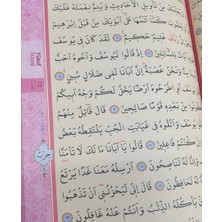 مِنْ تَأْوِيلِ الْأَحَادِيثِ وَيُتِمُّ نِعْمَتَهُ عَلَيْكَ
كَمَا أَتَمَّهَا عَلَى أَبَوَيْكَ مِنْ قَبْلُ إِبْرَاهِيمَ
عَلِيمٌ حَكِيمٌ لَقَدْ كَانَ فِي يُوسُفَ
لِلسَّائِلِينَ إِذْ قَالُوا لَيُوسُفُ وَأَخُوهُ أَحَبُّ
وَنَحْنُ عُصْبَةٌ إِنَّ أَبَانَا لَفِي ضَلَالٍ مُبِينٍ
أَوِ اطْرَحُوهُ أَرْضًا يَخْلُ لَكُمْ وَجْهُ أَبِيكُمْ
مِنْ بَعْدِهِ قَوْمًا صَالِحِينَ قَالَ قَائِلٌ مِنْهُمْ
يُوسُفَ وَأَلْقُوهُ فِي غَيَابَتِ الْجُبِّ يَلْتَقِطْهُ بَعْضُ
فَاعِلِينَ قَالُوا يَا أَبَانَا مَا لَكَ لَا تَأْمَنَّا
وَإِنَّا لَهُ لَنَاصِحُونَ أَرْسِلْهُ مَعَنَا غَدًا يَرْتَعْ
لَهُ لَحَافِظُونَ قَالَ إِنِّي لَيَحْزُنُنِي أَنْ تَذْهَبُوا
يَأْكُلَهُ الذِّئْبُ وَأَنْتُمْ عَنْهُ غَافِلُونَ